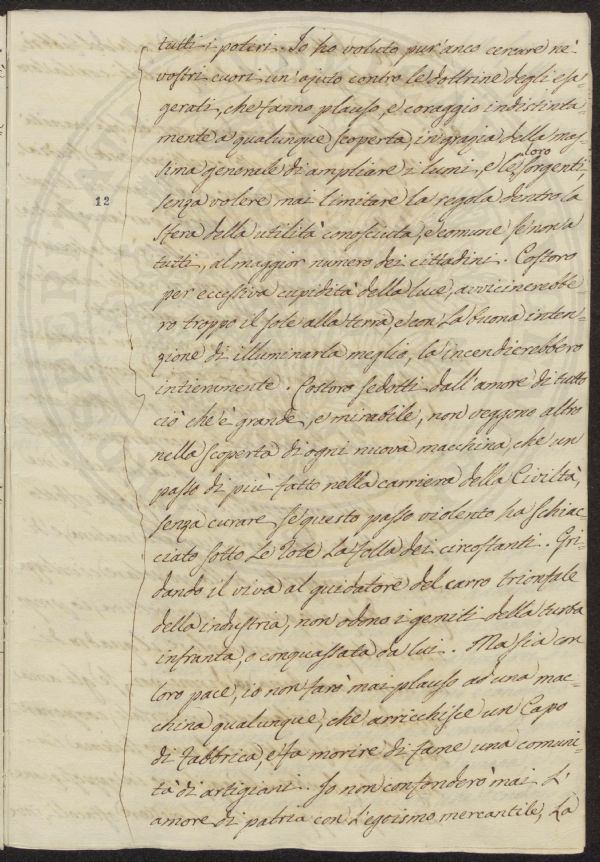 tutti i poteri. Io ho voluto pur'anco cercare ne'
vostri cuori un'ajuto contro le dottrine degli esa-
gerati, che fanno plauso, e coraggio indistinta-
mente a qualunque scoperta, in grazia della mas-
sima generale di ampliare i lumi, e le loro sorgenti,
12 senza volere mai limitare la regola dentro la
sfera della utilità conosciuta, e comune se non a
tutti, al maggior numero dei cittadini. Costoro
per eccessiva cupidità della luce, avvicinerebbe
ro troppo il sole alla terra, e con la buona inten-
zione di illuminarla meglio, la incendierebbero
intieramente. Costoro sedotti dall'amore di tutto
ciò ch'è grande, e mirabile, non veggono altro
nella scoperta di ogni nuova macchina, che un
passo di più fatto nella carriera della Civiltà,
senza curare se questo passo violento ha schiac
ciato sotto le rote la folla dei circostanti. Gri-
dando il viva al guidatore del carro trionfale
della industria, non odono i gemiti della turba
infranta, e conquassata da lui. Ma sia con
loro pace, io non farò mai plauso ad una mac-
china qualunque, che arricchisce un Capo
di Fabbrica, e fa morire di fame una comuni-
tà di artigiani. Io non confonderò mai l'
amore di patria con l'egoismo mercantile, la